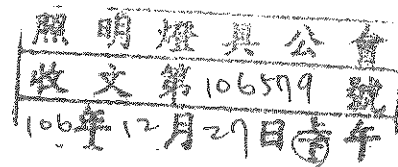 照明燈具公會
收文第106579號
106年12月27日午